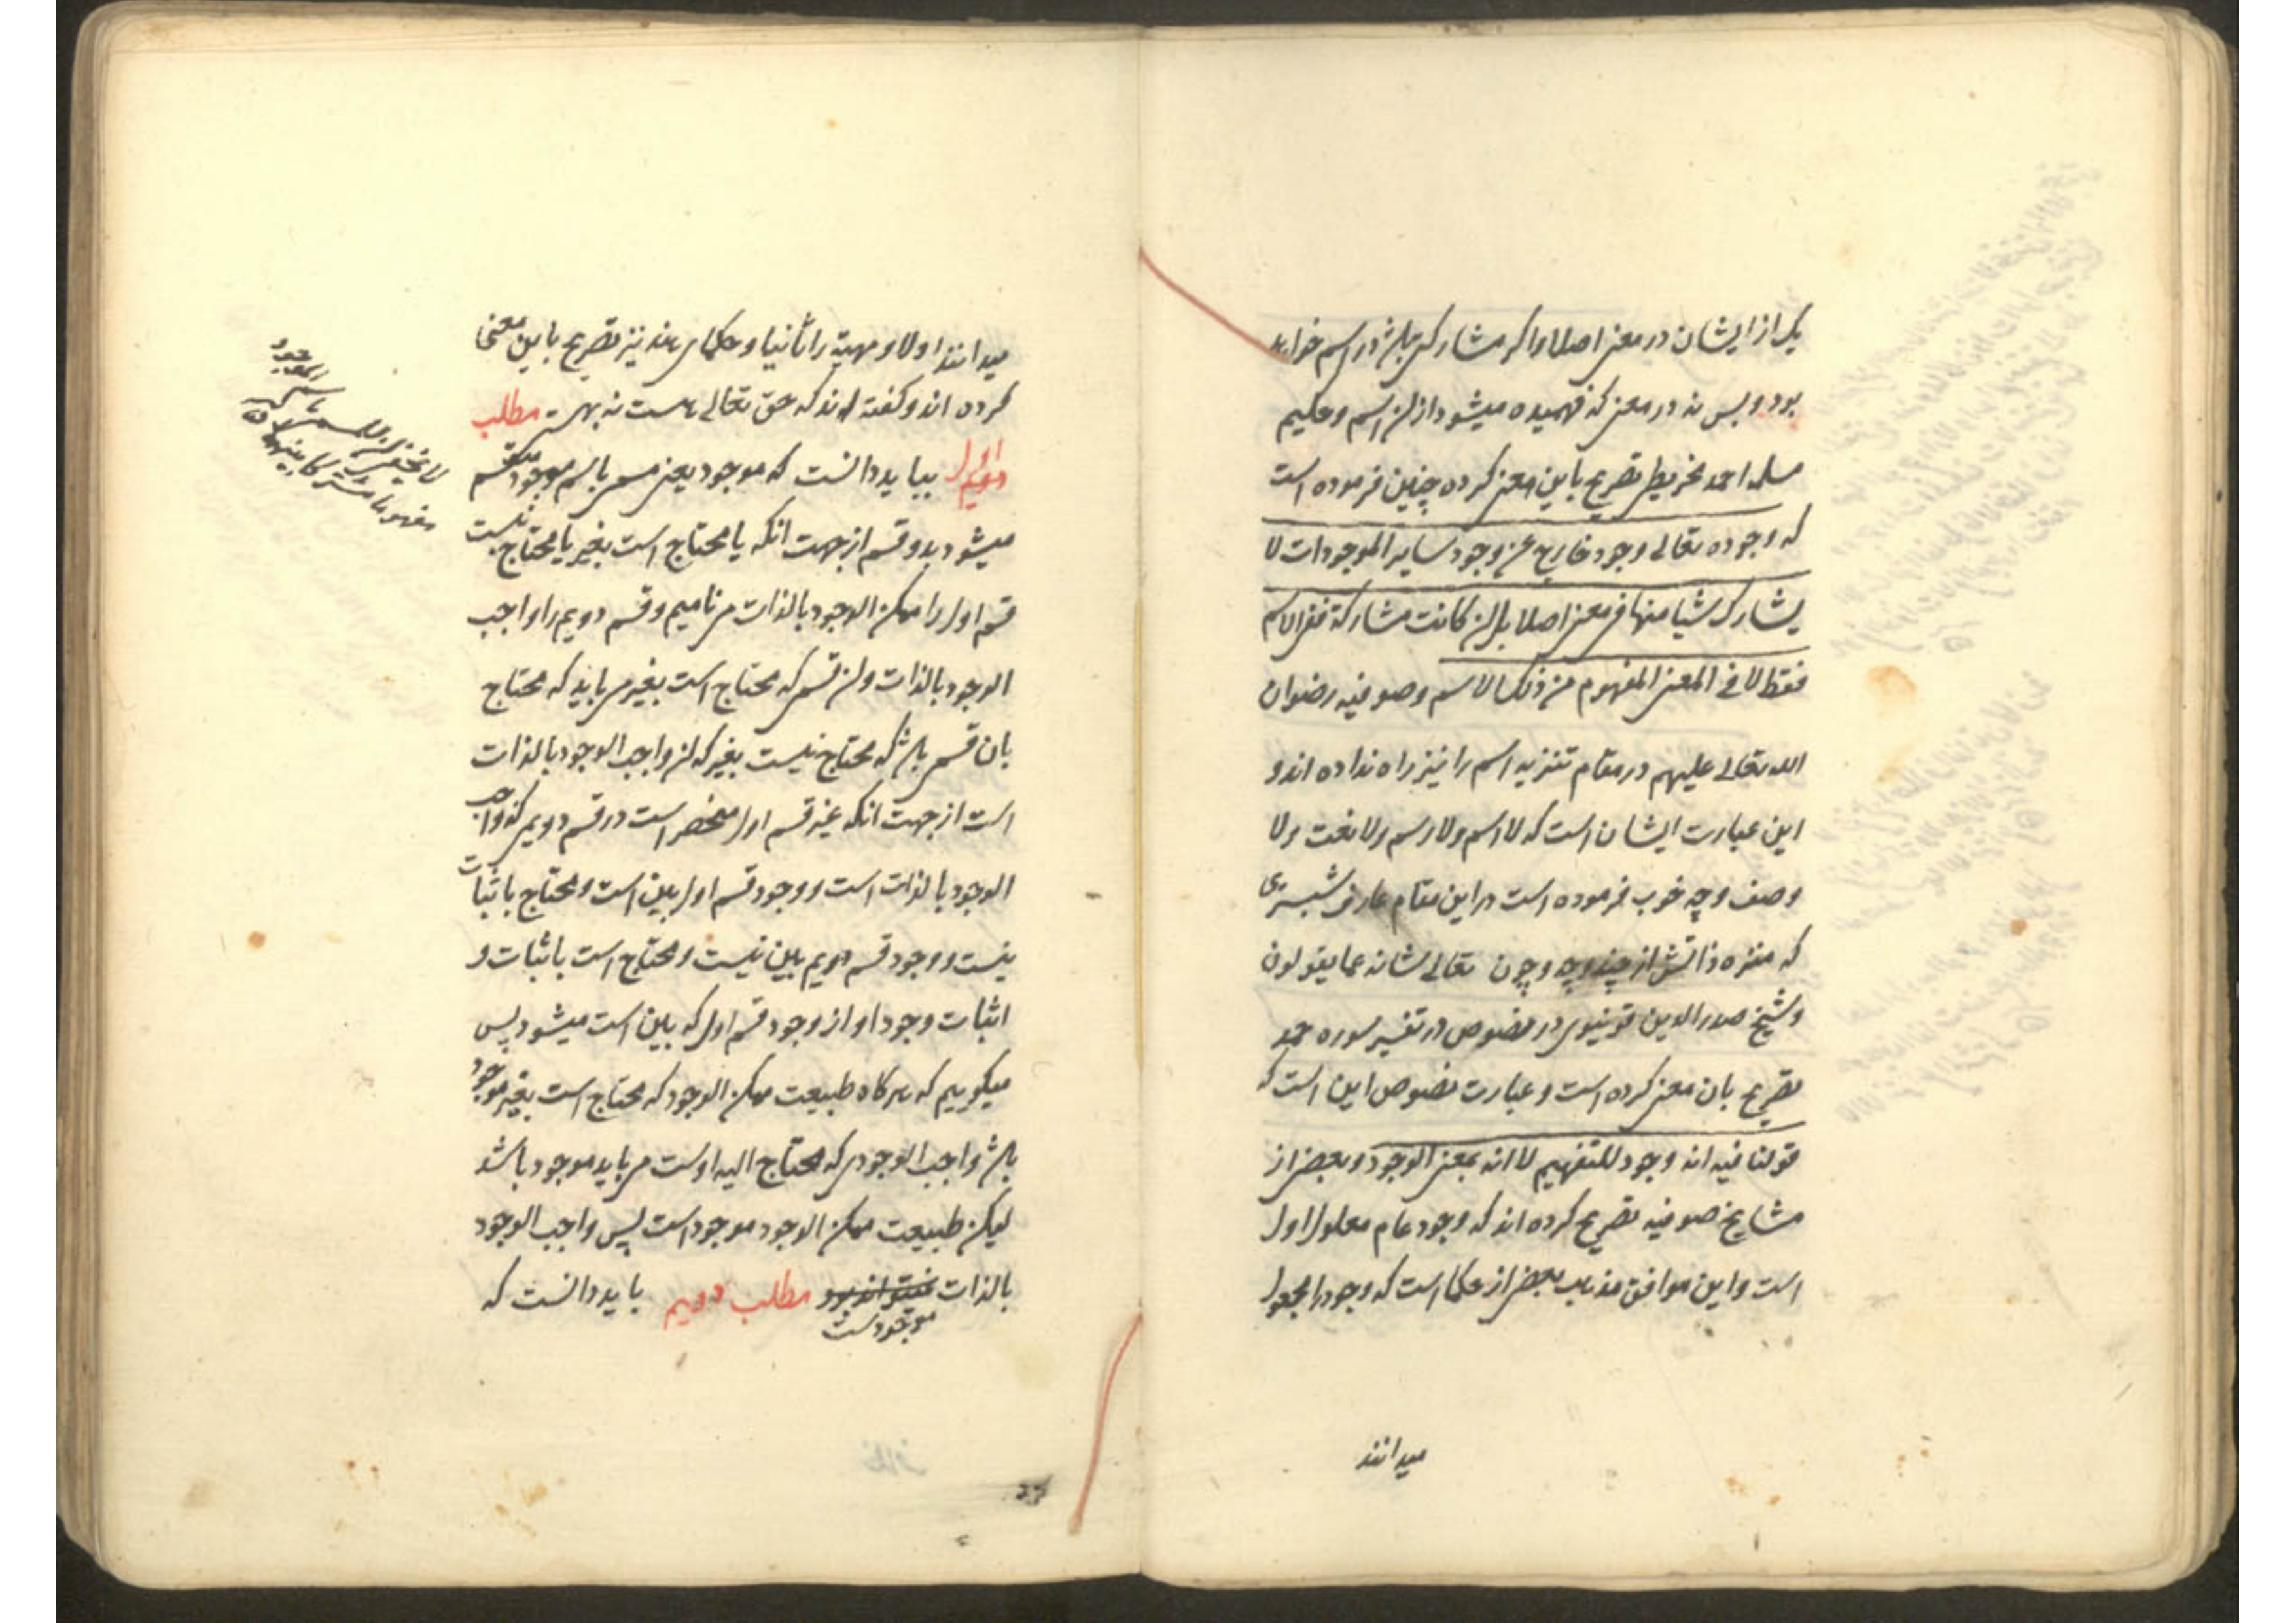 یک از ایشان در معنی اصلا و اگر مشارکی باشد در اسم خواهد
بود و بس نه در معنی که فهمیده میشود از ان اسم و حکیم
مسلمه احمد مجریطی تصریح باین معنی کرده چنین فرموده است
که وجوده تعالی وجود خارج عن وجود سایر الموجودات لا
یشارک شیا منها فی معنی اصلا بل ان کانت مشارکة ففی الاسم
فقط لا فی المعنی المفهوم من ذلک الاسم و صوفیه رضوان
الله تعالی علیهم در مقام تنزیه اسم را نیز راه نداده اند و
این عبارت ایشان است که لا اسم ولا رسم ولا نعت ولا
وصف و چه خوب فرموده است در این مقام عارف شبستری
که منزه ذاتش از چند و چه و چون تعالی شانه عما یقولون
و شیخ صدر الدین قونیوی در نصوص در تفسیر سوره حمد
تصریح بان معنی کرده است و عبارت نصوص این است که
قولنا فیه انه وجود للتفهیم لا انه بمعنی الوجود و بعضی از
مشایخ صوفیه تصریح کرده اند که وجود عام معلول اول
است و این موافق مذهب بعضی از حکما است که وجود را مجعول
میدانند
میدانند اولا و مهیة را ثانیا و حکمای هند نیز تصریح باین معنی
کرده اند و کفته اند که حق تعالی هست نه بهست مطلب
اول بباید دانست که موجود یعنی مسمی باسم موجود منقسم
میشود بدو قسم از جهت انکه یا محتاج است بغیر یا محتاج نیست
قسم اول را ممکن الوجود بالذات می نامیم و قسم دویم را واجب
الوجود بالذات و ان قسمی که محتاج است بغیر می باید که محتاج
بان قسمی باشد که محتاج نیست بغیر که ان واجب الوجود بالذات
است از جهت انکه غیر قسم اول منحصر است در قسم دویمی که واجب
الوجود بالذات است و وجود قسم اول بین است و محتاج باثبات
نیست و وجود قسم دویم بین نیست و محتاج است باثبات و
اثبات وجود او از وجود قسم اول که بین است میشود پس
میکوییم که هرکاه طبیعت ممکن الوجود که محتاج است بغیر موجود
باشد واجب الوجودی که محتاج الیه اوست می باید موجود باشد
لیکن طبیعت ممکن الوجود موجود است پس واجب الوجود
بالذات موجود است مطلب دویم باید دانست که
باسم
الموجود
مفهوما مشترکا بینهما